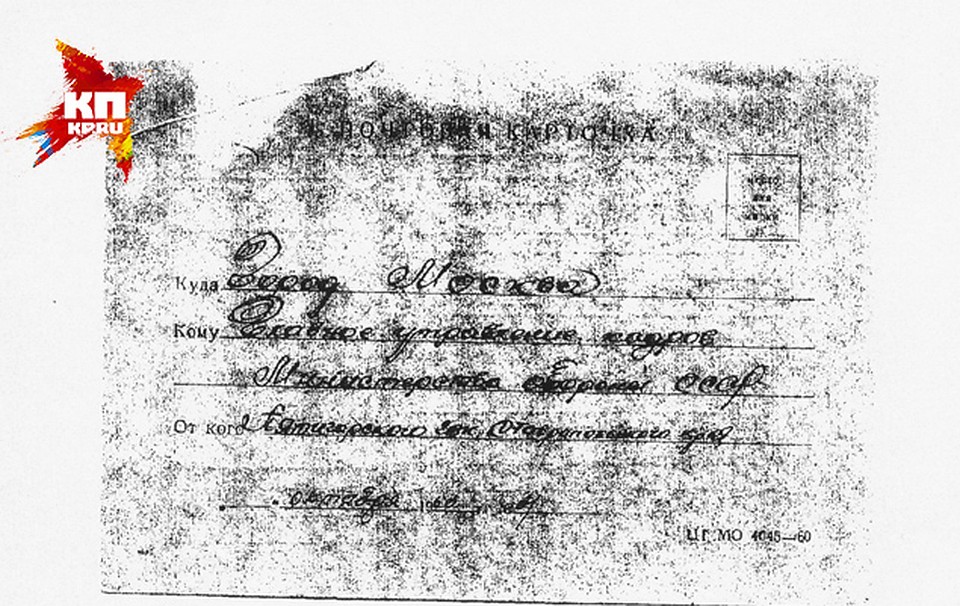 КП
KP.RU
ПОЧТОВАЯ КАРТОЧКА
Куда Город Москва
Кому Главное управление кадров
Министерства обороны СССР
От кого Пятигорского Ставропольского края
октября 19
ЦГ МО 4045—60